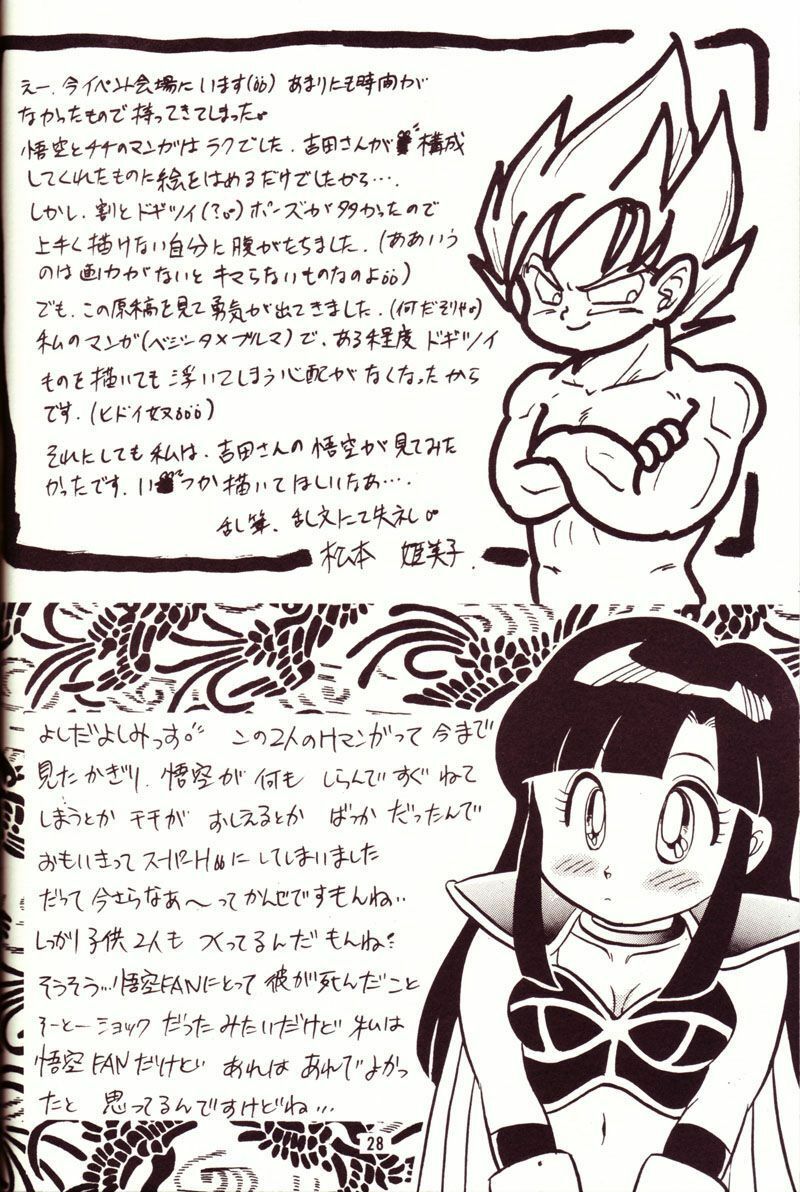 えー、今イベント会場にいます(öö) あまりにも時間が
なかったもので持ってきてしまった。
悟空とチチのマンガはラクでした。吉田さんが 構成
してくれたものに絵をはめるだけでしたから…。
しかし、割とドギツイ(?。)ポーズが多かったので
上手く描けない自分に腹がたちました。(ああいう
のは画力がないとキマらないものなのよöö)
でも、この原稿を見て勇気が出てきました。(何だそりゃ。)
私のマンガ(ベジータ×ブルマ)で、ある程度 ドギツイ
ものを描いても浮いてしまう心配がなくなったから
です。(ヒドイ奴ööö)
それにしても私は、吉田さんの悟空が見てみた
かったです。い つか描いてほしいなあ…。
乱筆、乱文にて失礼。
松本 姫美子.
よしだよしみっす。 この2人のHマンガって今まで
見たかぎり、悟空が何も しらんですぐねて
しまうとか チチが おしえるとか ばっか だったんで
おもいきってスーパーHööにしてしまいました
だって今さらなあ〜ってかんじですもんね..
しっかり子供2人も つくってるんだもんね?
そうそう…!悟空FANにとって彼が死んだこと
そーとーショック だったみたいだけど 私は
悟空FANだけど あれは あれでよかっ
たと 思ってるんですけどね…
28